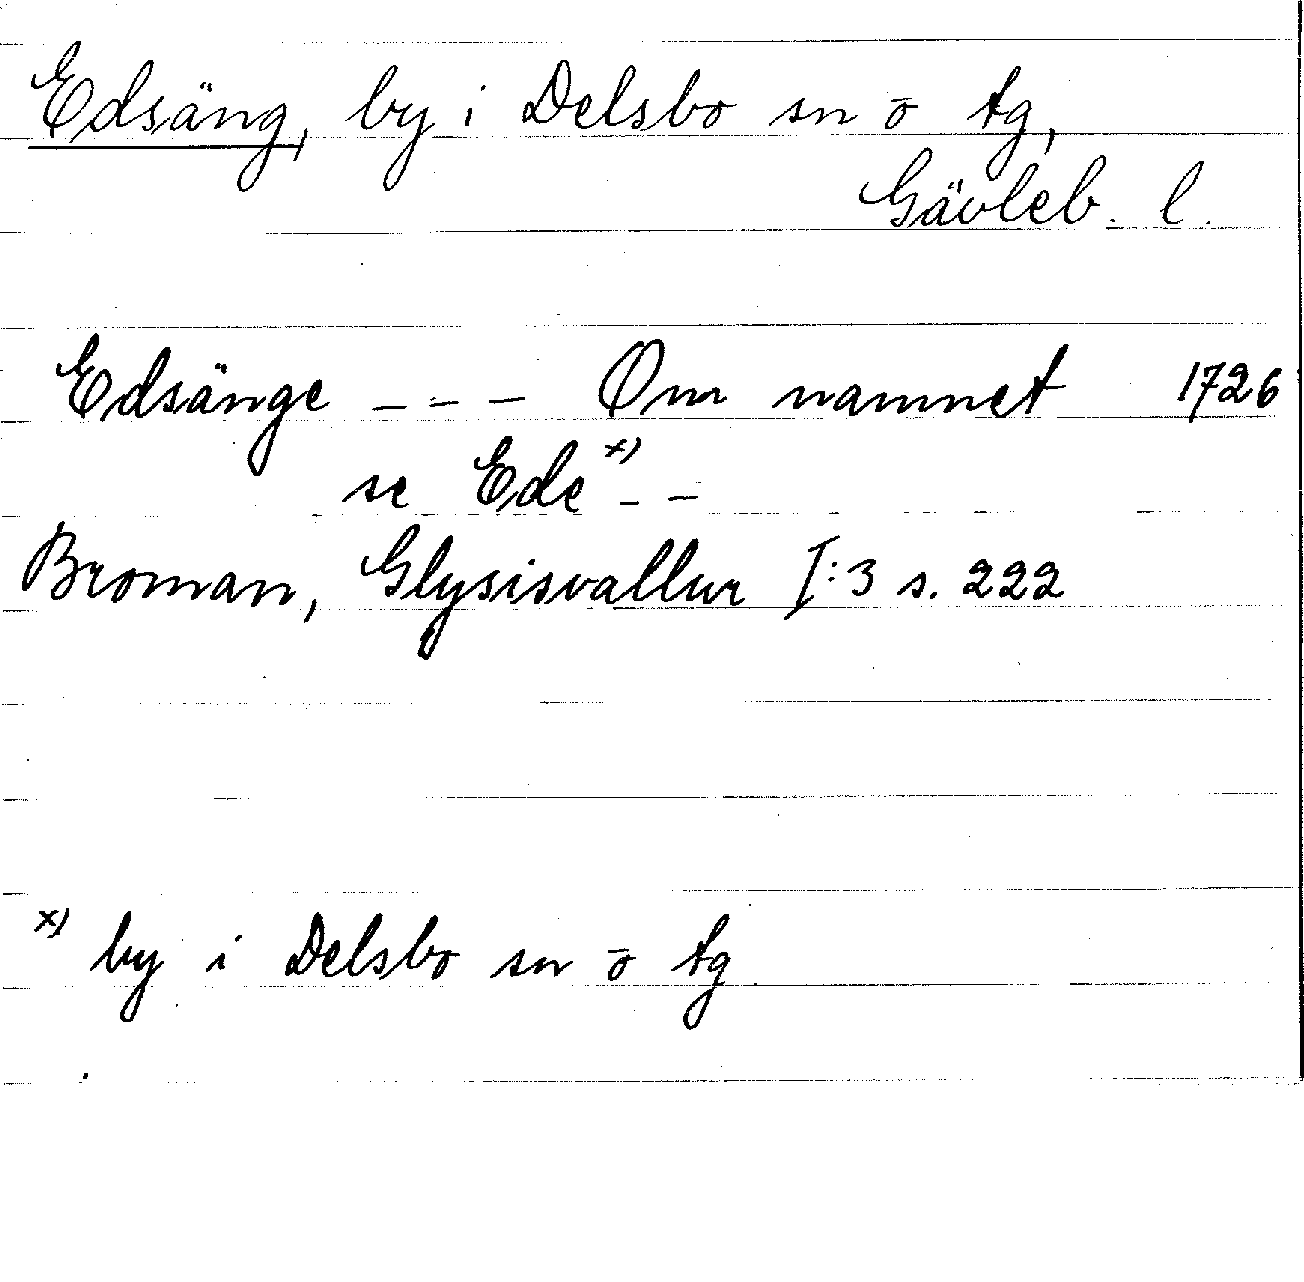 Edsäng, by i Delsbo sn o tg,
Gävleb. l.
Edsänge - - - Om namnet 1726
se Ede x) - -
Broman, Glysisvallur I:3 s. 222
x) by i Delsbo sn o tg